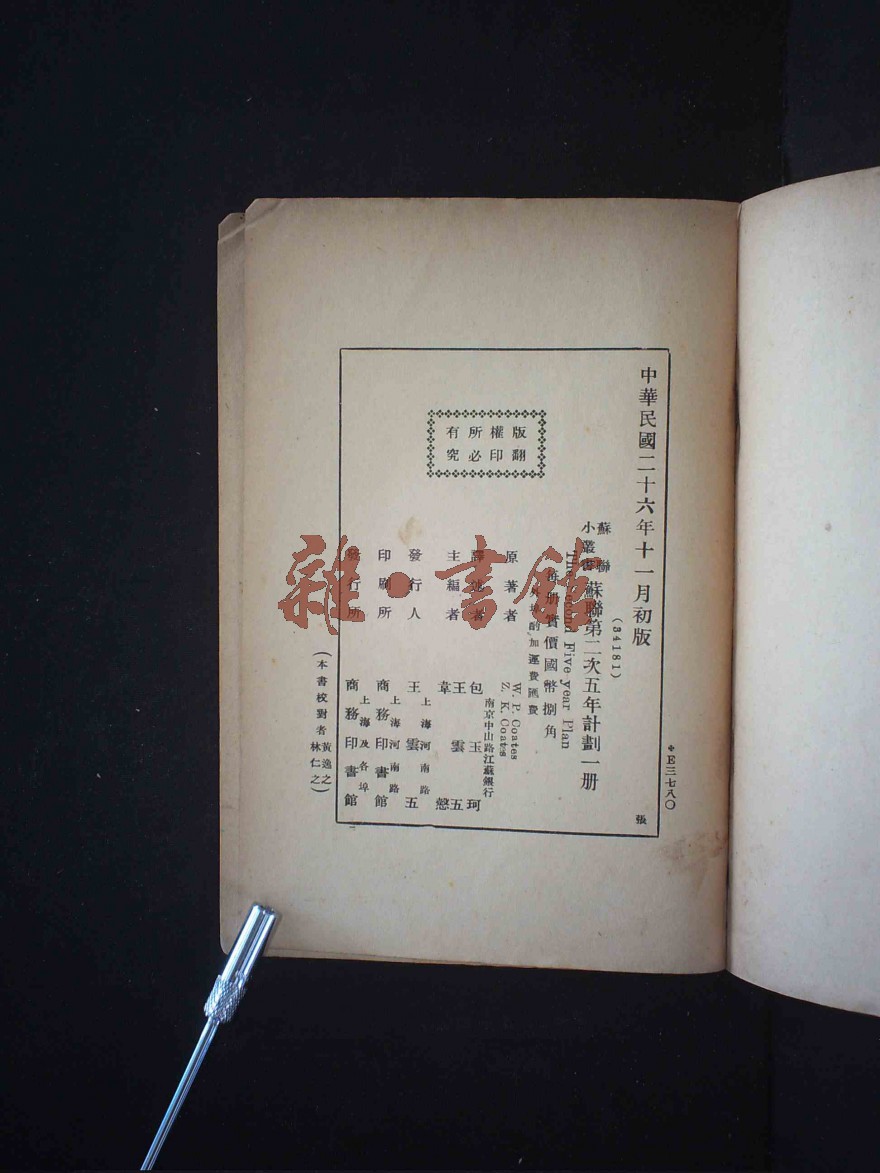 ＊E三七八〇
中華民國二十六年十一月初版
張
(34181)
蘇聯小叢書 蘇聯第二次五年計劃一册
The Second Five year Plan
每册實價國幣捌角
外埠酌加運費匯費
版權所有
翻印必究
原著者 W. P. Coates
Z. K. Coates
譯述者 包玉珂
南京中山路江蘇銀行
主編者 王雲五
韋愨
發行人 王雲五
上海河南路
印刷所 商務印書館
上海河南路
發行所 商務印書館
上海及各埠
(本書校對者 黃逸之
林仁之)
雜·書館